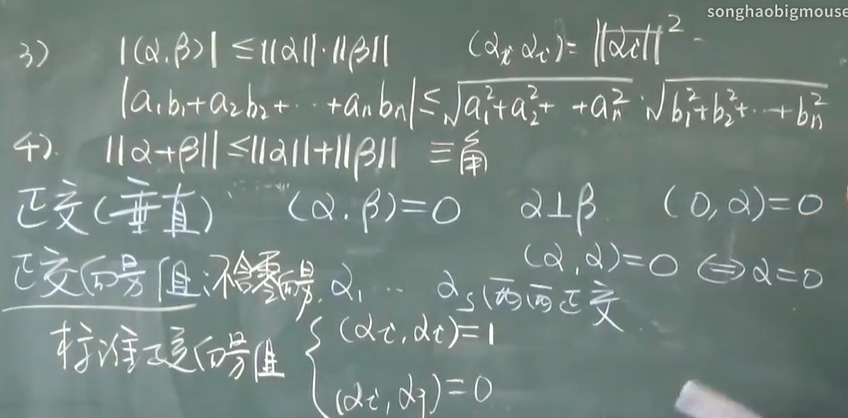 songhaobigmouse
3) |(α,β)| ≤ ||α||·||β|| (αi αi)= ||αi||²
|a₁b₁+a₂b₂+··+aₙbₙ| ≤ √(a₁²+a₂²+ +aₙ²) · √(b₁²+b₂²+··+bₙ²)
4). ||α+β|| ≤ ||α||+||β|| 三角
正交(垂直) (α.β)=0 α⊥β (0,α)=0
(α,α)=0 ⇔ α=0
正交向量组:不含零向量. α₁ ··· αs 两两正交
标准正交向量组 { (αi,αi)=1
(αi,αj)=0